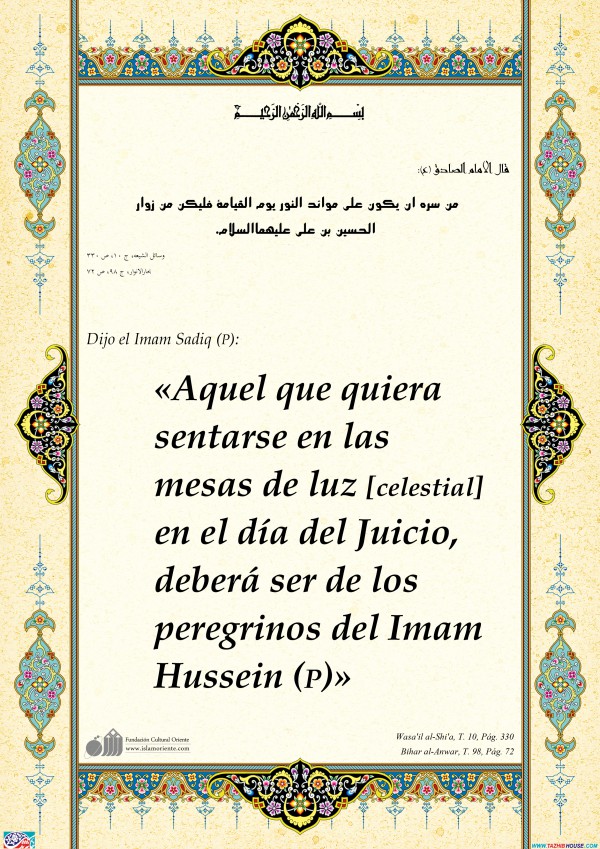 بسم الله الرحمن الرحيم
قال الامام الصادق (ع):
من سره ان يكون على موائد النور يوم القيامة فليكن من زوار
الحسين بن على عليهماالسلام.
وسائل الشیعه، ج ۱۰، ص ۳۳۰
بحارالانوار، ج ۹۸، ص ۷۲
Dijo el Imam Sadiq (P):
«Aquel que quiera
sentarse en las
mesas de luz [celestial]
en el día del Juicio,
deberá ser de los
peregrinos del Imam
Hussein (P)»
Fundación Cultural Oriente
www.islamoriente.com
Wasa'il al-Shi'a, T. 10, Pág. 330
Bihar al-Anwar, T. 98, Pág. 72
WWW.TAZHIBHOUSE.COM